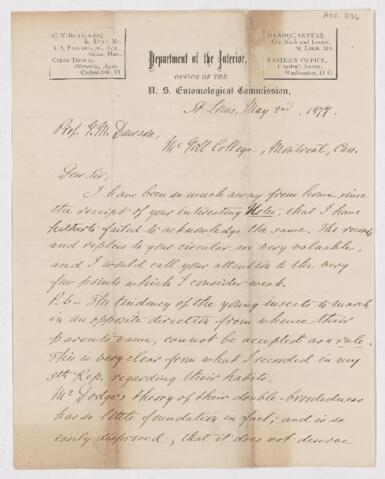 Acc. 876
C. V. Riley, Chief,
St. Louis, Mo.
A. S. Packard, Jr., Sec'y,
Salem, Mass.
Cyrus Thomas,
Disburs'g Agent,
Carbondale, Ill.
HEADQUARTERS,
St. Louis, Mo.
EASTERN OFFICE,
Hayden's Survey,
Washington, D. C.
Department of the Interior,
OFFICE OF THE
U. S. Entomological Commission,
St. Louis, May 2nd, 1877.
Prof. G. M. Dawson,
McGill College, Montreal, Can.
Dear Sir,
I have been so much away from home since
the receipt of your interesting Notes, that I have
hitherto failed to acknowledge the same. The records
and replies to your circular are very valuable,
and I would call your attention to the very
few points which I consider weak.
P. 6 – The tendency of the young insects to march
in an opposite direction from whence their
parents came, cannot be accepted as a rule.
This is very clear from what I recorded in my
9th Rep. regarding their habits.
Mr Dodge's theory of their double-broodedness
has so little foundation in fact, and is so
easily disproved, that it does not deserve